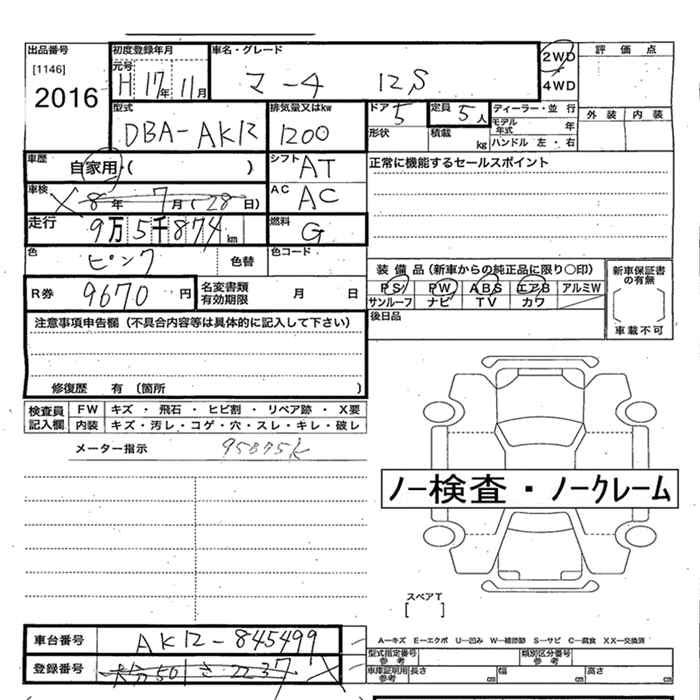 出品番号 初度登録年月 車名・グレード 2WD 評価点
[1146] 元号 H 17年 11月 マーチ 12S 4WD
2016 外装 内装
型式 排気量又はkw ドア 5 定員 5人 ディーラー・並行
DBA-AK12 1200 形状 積載 kg モデル年式 年
ハンドル 左・右
車歴 自家用・( ) シフト AT 正常に機能するセールスポイント
車検 8年 7月 (28日) AC AC
走行 9万5千874km 燃料 G
色 ピンク 色替 色コード
装備品(新車からの純正品に限り○印) 新車保証書の有無
R券 9670円 名変書類有効期限 月 日 PS PW ABS エアB アルミW
サンルーフ ナビ TV カワ
注意事項申告欄(不具合内容等は具体的に記入して下さい) 後日品 車載不可
修復歴 有 (箇所 )
検査員記入欄 FW キズ・飛石・ヒビ割・リペア跡・X要
内装 キズ・汚レ・コゲ・穴・スレ・キレ・破レ
メーター指示 95875k
ノー検査・ノークレーム
スペアT
[ ]
車台番号 AK12-845499 A―キズ E―エクボ U―凹み W―補修跡 S―サビ C―腐食 XX―交換済
登録番号 大分501さ2237 型式指定番号参考 類別区分番号参考
車庫証明用参考 長さ cm 幅 cm 高さ cm